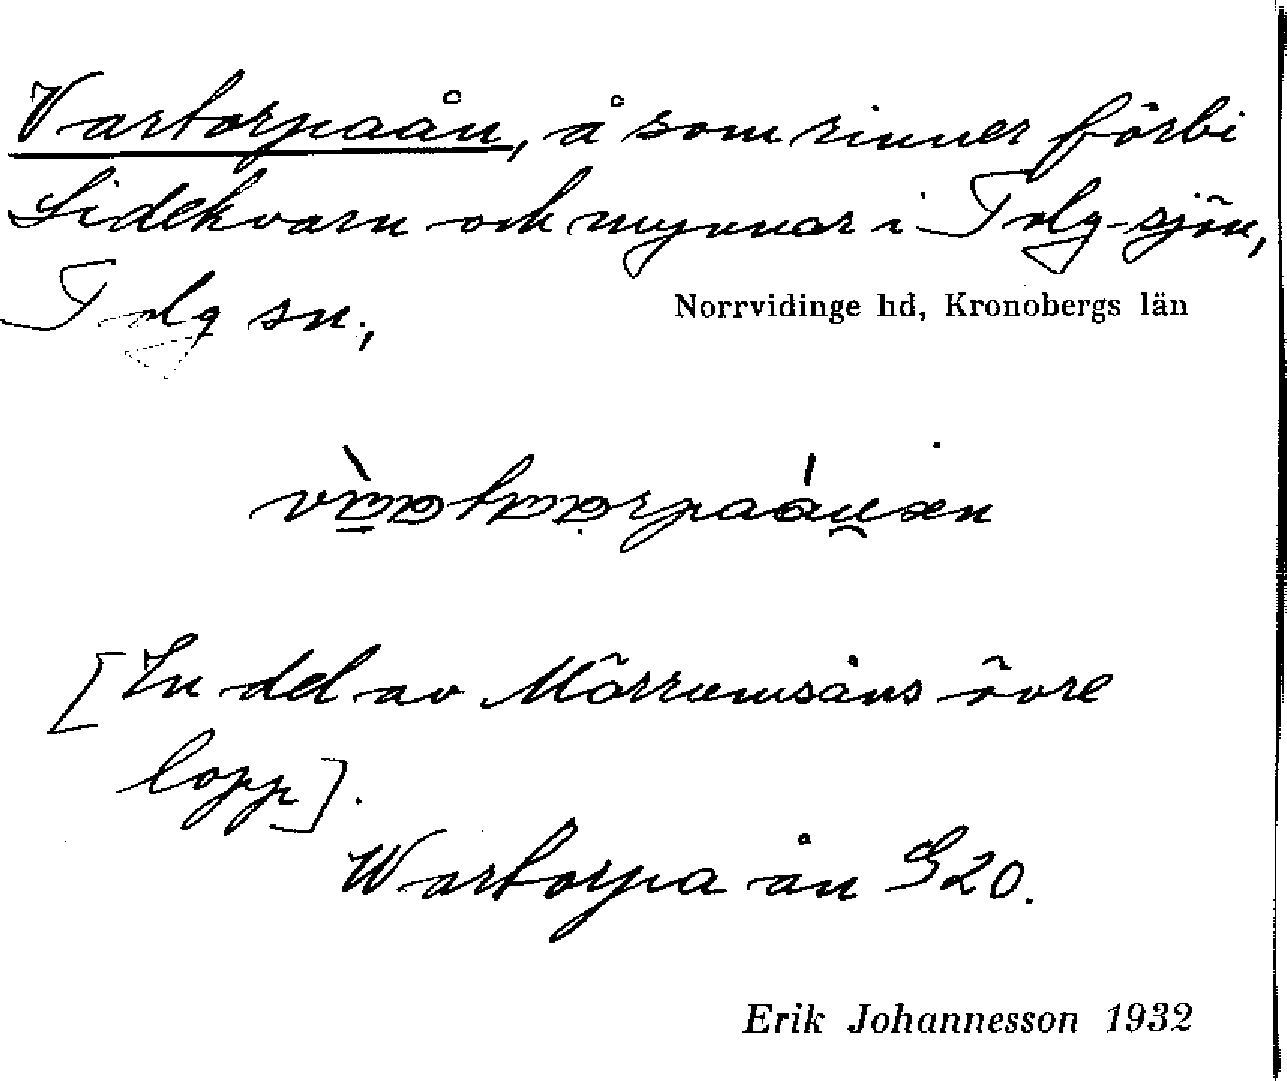 Vartorpaån, å som rinner förbi
Lidekvarn och mynnar i Tolg-sjön,
Tolg sn.,
Norrvidinge hd, Kronobergs län
[En del av Mörrumsåns övre
lopp].
Wartorpa ån G20.
Erik Johannesson 1932